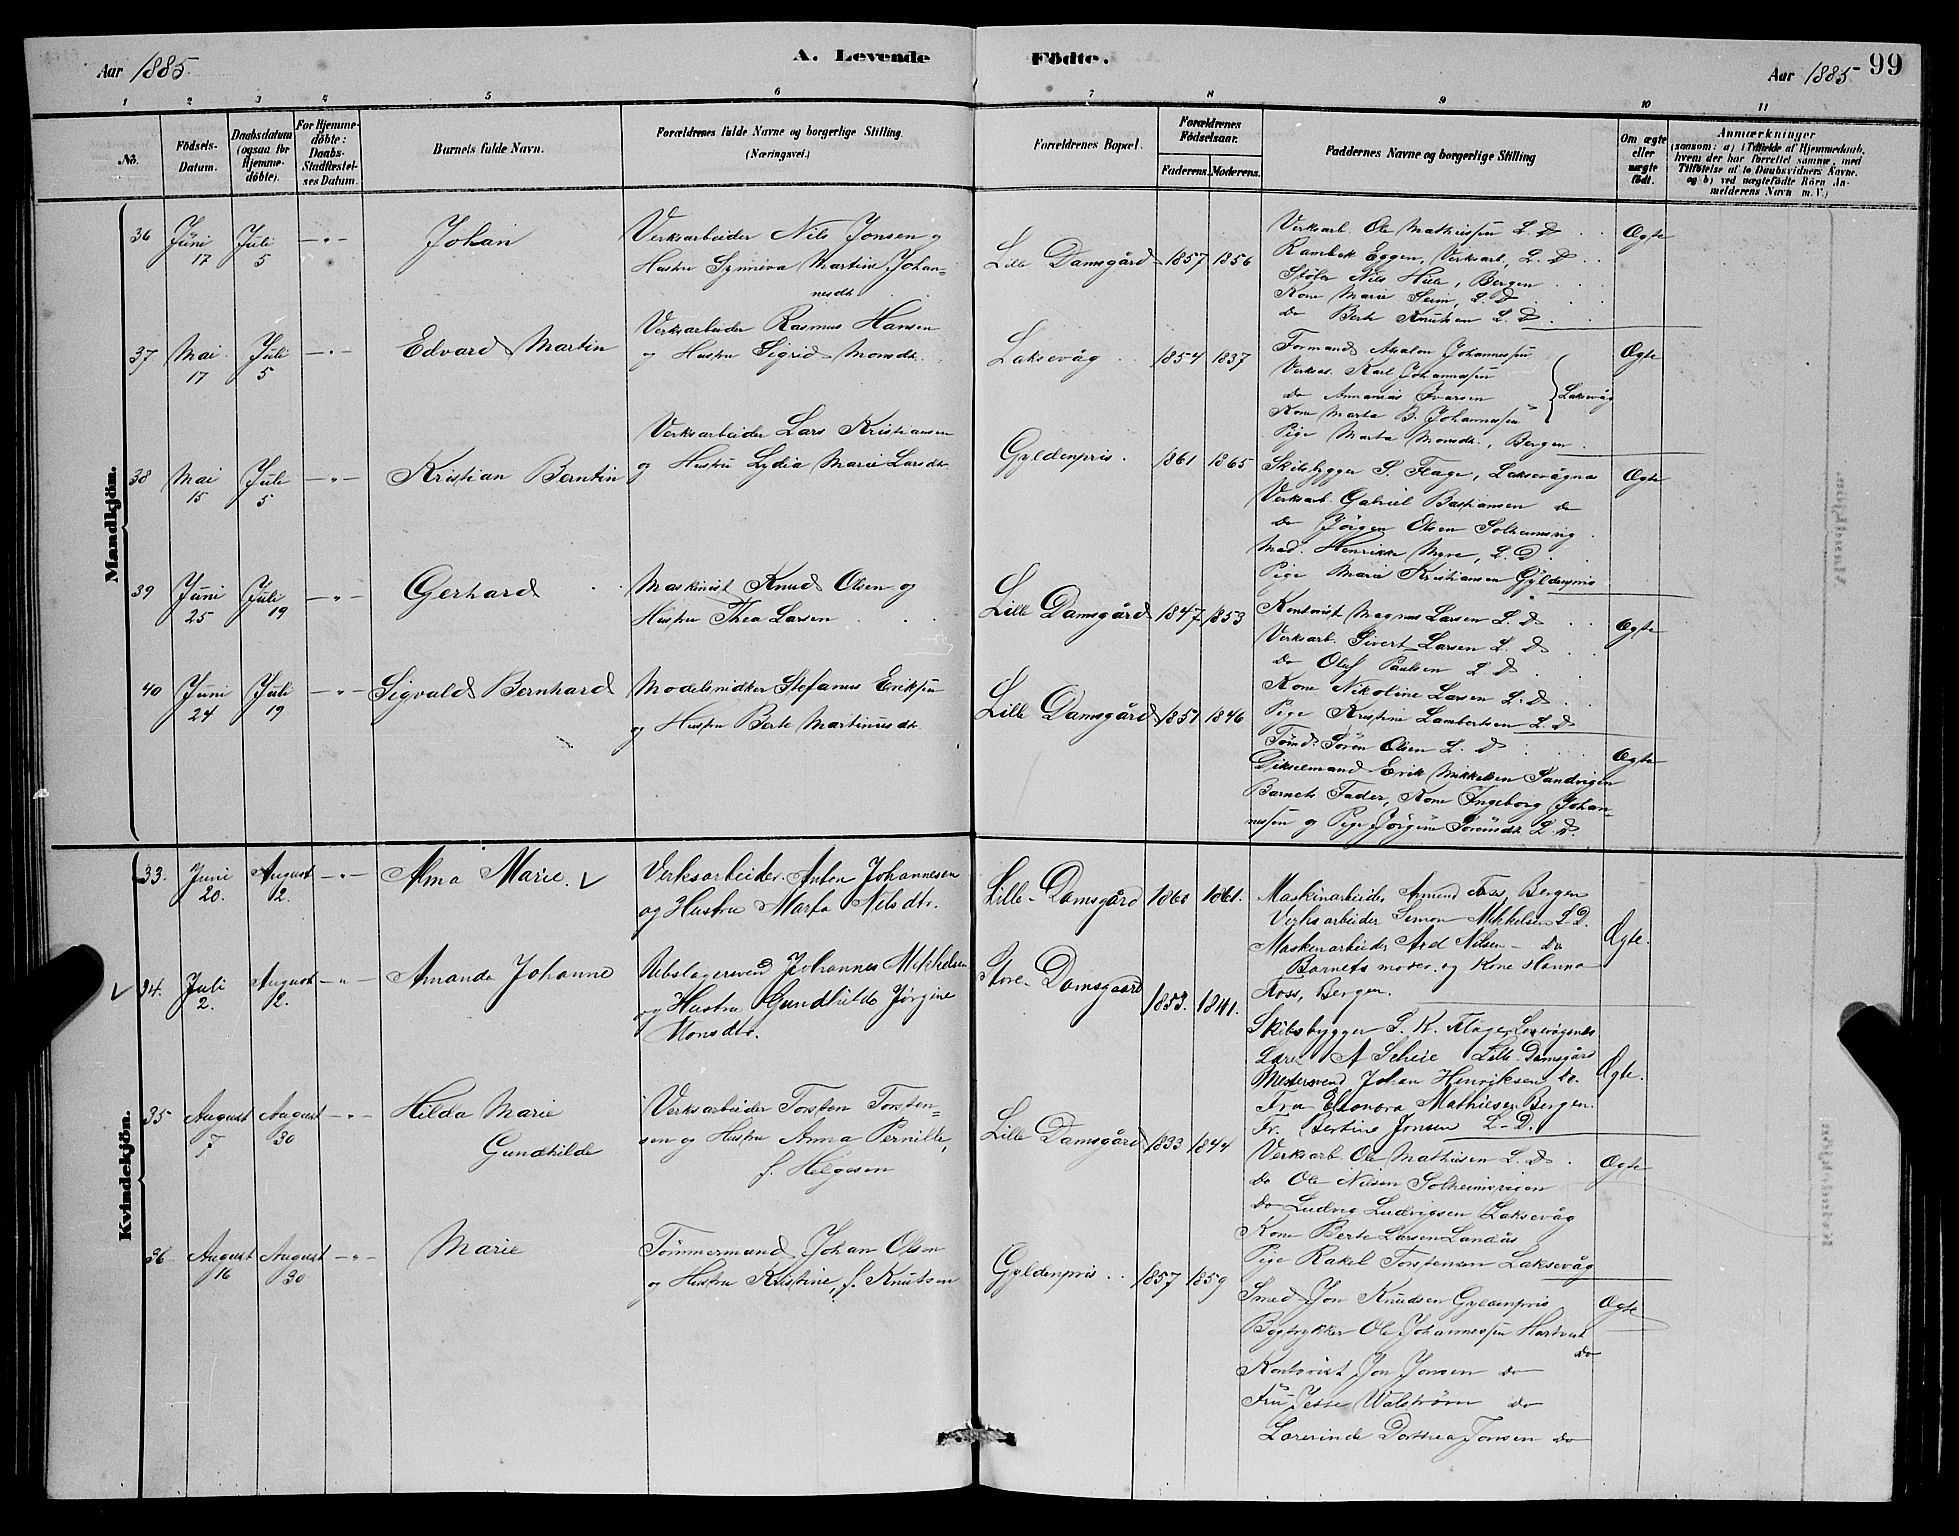 Aar 1885.
A. Levende
Födte.
Aar 1885
99
1 2 3 4 5 6 7 8 9 10 11
No.
Födsels-Datum.
Daabsdatum (ogsaa for Hjemme-döbte).
For Hjemme-döbte: Daabs-Stadfæstel-ses Datum.
Barnets fulde Navn.
Forældrenes fulde Navne og borgerlige Stilling. (Næringsvei.)
Forældrenes Bopæl.
Forældrenes Födselsaar.
Faderens. Moderens.
Faddernes Navne og borgerlige Stilling
Om ægte eller uægte födt.
Anmærkninger
(saasom: a) i Tilfælde af Hjemmedaab,
hvem der har forrettet samme, med
Tilföielse af to Daabsvidners Navne.
og b) ved uægtefödte Börn An-
melderens Navn m. V.)
Mandkjön.
36 Juni 17 Juli 5 — " — Johan
Verksarbeider Nils Jonsen og
Hustru Synneva Martine Johan-
nesdtr
Lille Damsgård 1857 1856
Verksarb. Ole Mathiassen L. D.
Rambek Eggen, Verksarb, L. D.
Støber Nils Hile, Bergen
Kone Marie Seim, L. D.
do Berte Knutsen L. D.
Ægte
37 Mai 17 Juli 5 — " — Edvard Martin
Verksarbeider Rasmus Hansen
og Hustru Sigrid Monsdtr.
Laksevåg 1854 1837
Formand Absalon Johannessen
Verksar. Karl Johannessen
do Annanias Ivarsen
Kone Marta B. Johannessen
Laksevåg
Pige Marta Monsdtr., Bergen
Ægte
38 Mai 15 Juli 5 — " — Kristian Berntin
Verksarbeider Lars Kristiansen
og Hustru Lydia Marie Larsdtr
Gyldenpris. 1861 1865
Skibsbygger S. Flage, Laksevågnes
Verksarb. Gabriel Bastiansen do
do Jörgen Olsen Solheimsvig
Mad. Henrikke Myre, L. D.
Pige Marie Kristiansen Gyldenpris
Ægte
39 Juni 25 Juli 19 — " — Gerhard
Maskinist Knud Olsen og
Hustru Thea Larsen
Lille Damsgård 1847 1853
Kontorist Magnus Larsen L. D.
Verksarb. Sivert Larsen L. D.
do Oluf Paulsen L. D.
Kone Nikoline Larsen L. D.
Pige Kristine Lambertsen L. D
Ægte
40 Juni 24 Juli 19 — " — Sigvald Bernhard
Modelsnidker Stefanus Eriksen
og Hustru Berte Martinusdtr.
Lille Damsgård 1851 1846
Tömd. Sören Olsen L. D.
Erik Mikkelsen Sandvigen
Barnets Fader, Kone Ingeborg Johan-
nessen og Pige Jörgine Sörensdtr. L. D.
Ægte
Kvindekjön.
33. Juni 20. August 2. — " — Alma Marie. √
Verksarbeider Anton Johannesen
og Hustru Marta Nilsdtr.
Lille-Damsgård 1860 1861.
Maskinarbeider Amund Foss, Bergen
Verksarbeider Simon Mikkelsen L. D.
Maskenarbeider Ard Nilsen - do
Barnets moder. og Kone Hanna
Foss, Bergen.
Ægte.
√ 34. Juli 2. August 2. — " — Amanda Johanne
Rebslagersvend Johannes Mikkelsen
og Hustru Gundhilde Jørgine
Monsdtr.
Store-Damsgaard 1853. 1841.
Skibsbygger S. K. Flage, Laxevågsnes
Lærer A Scheie Lille-Damsgård
Mestersvend Johan Henriksen do.
Fru Elonora Mathiesen Bergen.
Fr. Bertine Jonsen L-D.
Ægte.
35 August 7 August 30 — " — Hilda Marie
Gundhilde
Verksarbeider Torsten Torsten-
sen og Hustru Anna Pernille,
f. Helgesen
Lille Damsgård 1833 1844
Verksarb. Ole Mathiesen L. D.
do Ole Nilsen Solheimsvigen
do Ludvig Ludvigsen Laksevåg
Kone Berte Larsen Landås
Pige Rakel Torstensen Laksevåg
Ægte
36 August 16 August 30 — " — Marie
Tömmermand Johan Olsen
og Hustru Kristine, f. Knutsen
Gyldenpris. 1857 1859
Smed Jon Knudsen Gyldenpris
Bogtrykker Ole Johannessen
do
Kontorist Jon Jonsen do
Fru Jesse Walström do
Lærerinde Dorthea Jonsen do
Ægte